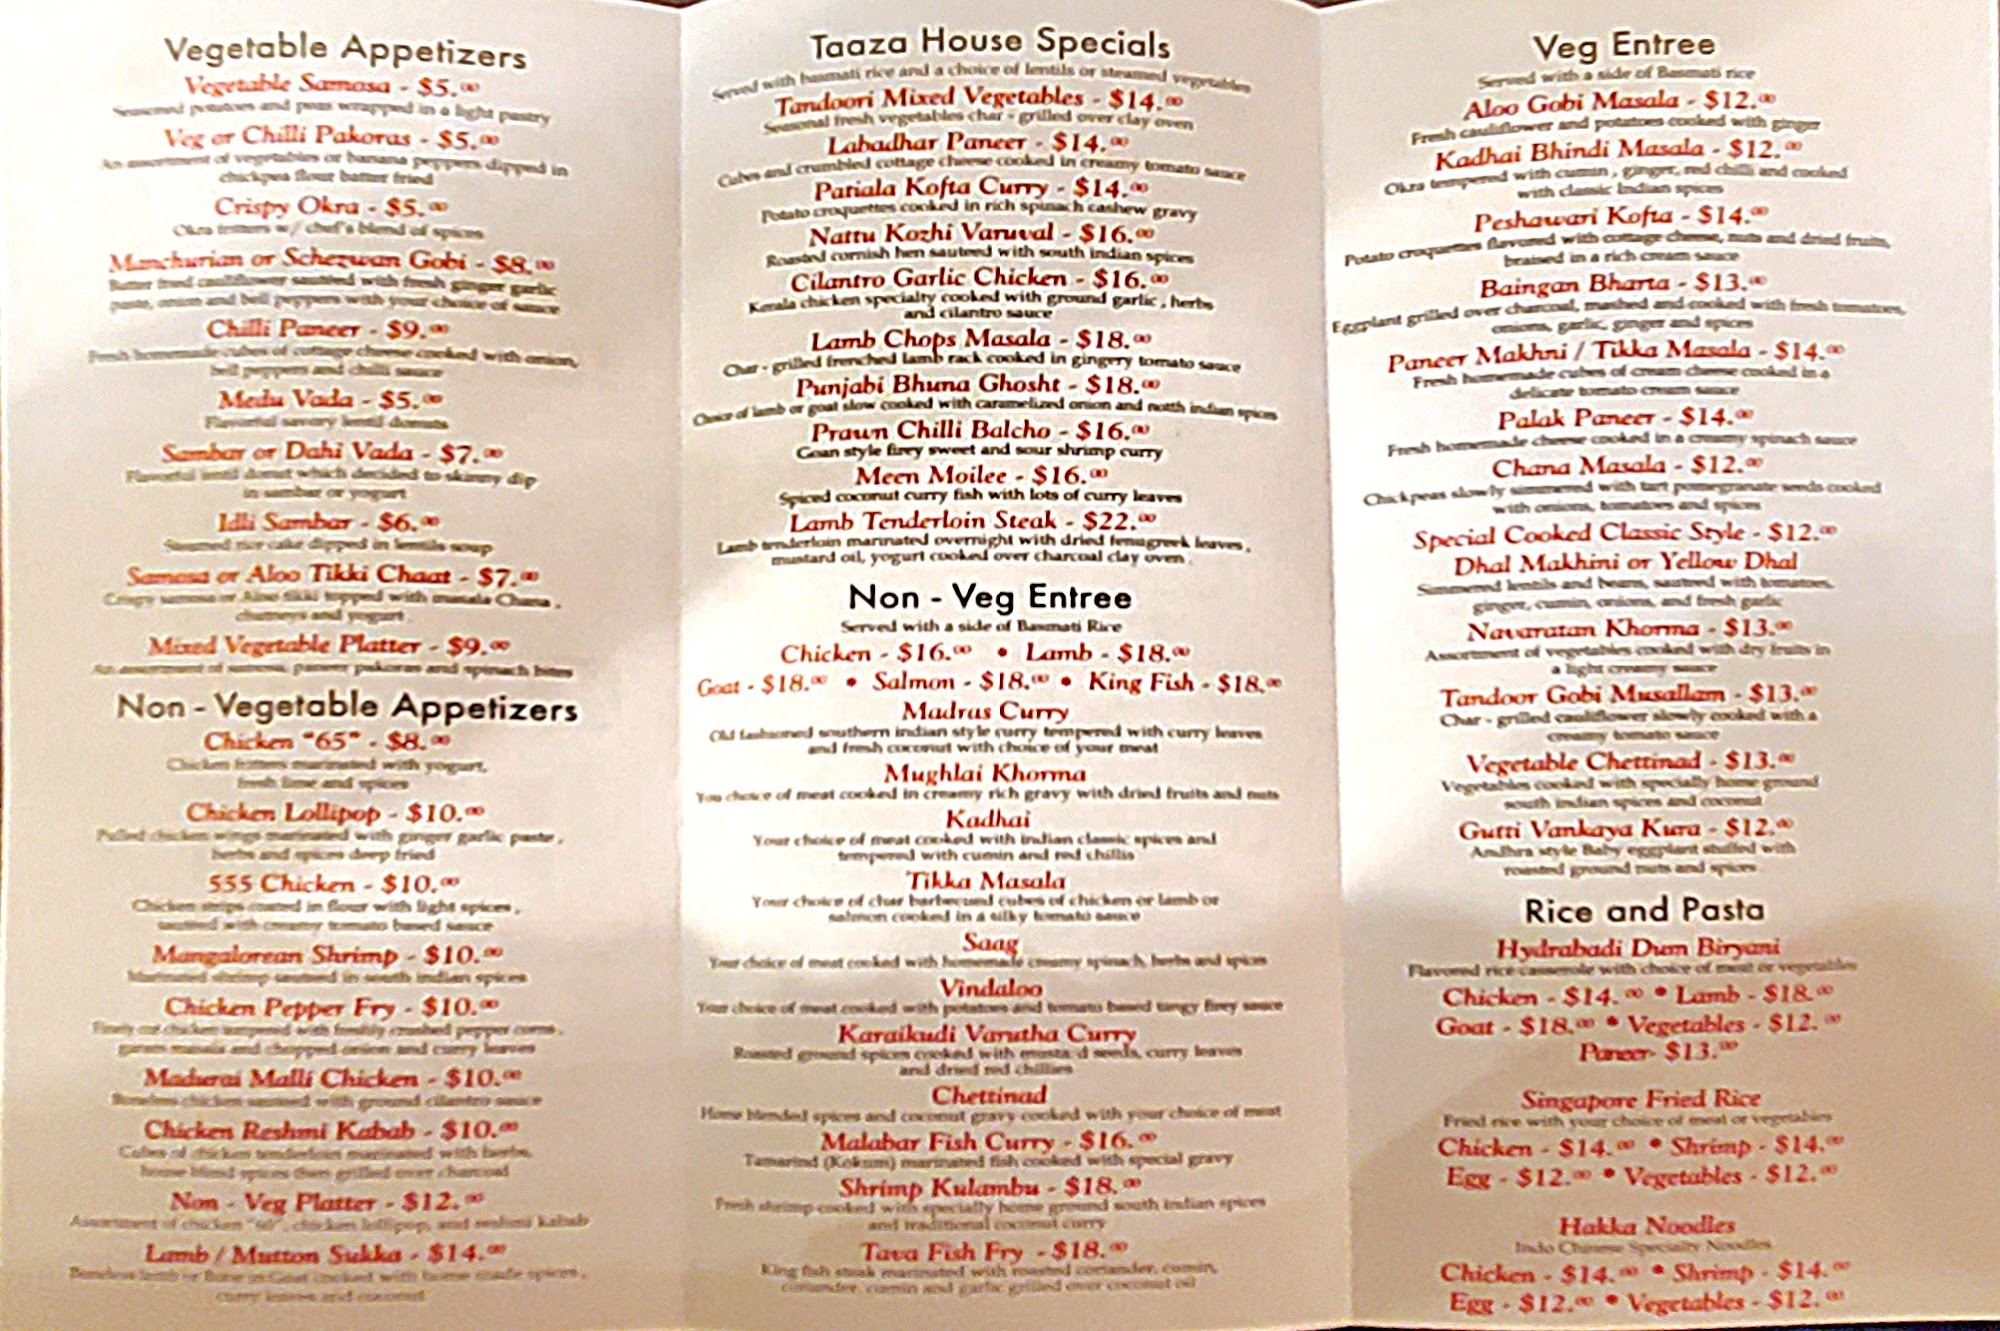 Vegetable Appetizers
Vegetable Samosa - $5.00
Seasoned potatoes and peas wrapped in a light pastry
Veg or Chilli Pakoras - $5.00
An assortment of vegetables or banana peppers dipped in
chickpea flour batter fried
Crispy Okra - $5.00
Okra fritters w/ chef's blend of spices
Manchurian or Schezwan Gobi - $8.00
Batter fried cauliflower sauteed with fresh ginger garlic
paste, onion and bell peppers with your choice of sauce
Chilli Paneer - $9.00
Fresh homemade cubes of cottage cheese cooked with onion,
bell peppers and chilli sauce
Medu Vada - $5.00
Flavorful savory lentil donuts
Sambar or Dahi Vada - $7.00
Flavorful lentil donut which decided to skinny dip
in sambar or yogurt
Idli Sambar - $6.00
Steamed rice cake dipped in lentils soup
Samosa or Aloo Tikki Chaat - $7.00
Crispy samosa or Aloo tikki topped with masala Chana ,
chutneys and yogurt .
Mixed Vegetable Platter - $9.00
An assortment of samosa, paneer pakoras and spinach bites
Non - Vegetable Appetizers
Chicken "65" - $8.00
Chicken fritters marinated with yogurt,
fresh lime and spices
Chicken Lollipop - $10.00
Pulled chicken wings marinated with ginger garlic paste ,
herbs and spices deep fried
555 Chicken - $10.00
Chicken strips coated in flour with light spices ,
sauteed with creamy tomato based sauce
Mangalorean Shrimp - $10.00
Marinated shrimp sauteed in south indian spices
Chicken Pepper Fry - $10.00
Finely cut chicken tempered with freshly crushed pepper corns ,
garam masala and chopped onion and curry leaves
Madurai Malli Chicken - $10.00
Boneless chicken sauteed with ground cilantro sauce
Chicken Reshmi Kabab - $10.00
Cubes of chicken tenderloin marinated with herbs,
house blend spices then grilled over charcoal
Non - Veg Platter - $12.00
Assortment of chicken chicken lollipop, and reshmi kabab
Lamb / Mutton Sukka - $14.00
Boneless lamb or Bone in Goat cooked with home made spices ,
curry leaves and coconut
Taaza House Specials
Served with basmati rice and a choice of lentils or steamed vegetables
Tandoori Mixed Vegetables - $14.00
Seasonal fresh vegetables char - grilled over clay oven
Labadhar Paneer - $14.00
Cubes and crumbled cottage cheese cooked in creamy tomato sauce
Patiala Kofta Curry - $14.00
Potato croquettes cooked in rich spinach cashew gravy
Nattu Kozhi Varuval - $16.00
Roasted cornish hen sauteed with south indian spices
Cilantro Garlic Chicken - $16.00
Kerala chicken specialty cooked with ground garlic , herbs
and cilantro sauce
Lamb Chops Masala - $18.00
Char - grilled frenched lamb rack cooked in gingery tomato sauce
Punjabi Bhuna Ghosht - $18.00
Choice of lamb or goat slow cooked with caramelized onion and north indian spices
Prawn Chilli Balcho - $16.00
Goan style firey sweet and sour shrimp curry
Meen Moilee - $16.00
Spiced coconut curry fish with lots of curry leaves
Lamb Tenderloin Steak - $22.00
Lamb tenderloin marinated overnight with dried fenugreek leaves ,
mustard oil, yogurt cooked over charcoal clay oven .
Non - Veg Entree
Served with a side of Basmati Rice
Chicken - $16.00 • Lamb - $18.00
Goat - $18.00 • Salmon - $18.00 • King Fish - $18.00
Madras Curry
Old fashioned southern indian style curry tempered with curry leaves
and fresh coconut with choice of your meat
Mughlai Khorma
You choice of meat cooked in creamy rich gravy with dried fruits and nuts
Kadhai
Your choice of meat cooked with indian classic spices and
tempered with cumin and red chillis
Tikka Masala
Your choice of char barbecued cubes of chicken or lamb or
salmon cooked in a silky tomato sauce
Saag
Your choice of meat cooked with homemade creamy spinach, herbs and spices
Vindaloo
Your choice of meat cooked with potatoes and tomato based tangy firey sauce
Karaikudi Varutha Curry
Roasted ground spices cooked with musta d seeds, curry leaves
and dried red chillies
Chettinad
Home blended spices and coconut gravy cooked with your choice of meat
Malabar Fish Curry - $16.00
Tamarind (Kokum) marinated fish cooked with special gravy
Shrimp Kulambu - $18.00
Fresh shrimp cooked with specially home ground south indian spices
and traditional coconut curry
Tava Fish Fry - $18.00
King fish steak marinated with roasted coriander, cumin,
coriander, cumin and garlic grilled over coconut oil
Veg Entree
Served with a side of Basmati rice
Aloo Gobi Masala - $12.00
Fresh cauliflower and potatoes cooked with ginger
Kadhai Bhindi Masala - $12.00
Okra tempered with cumin , ginger, red chilli and cooked
with classic Indian spices
Peshawari Kofta - $14.00
Potato croquettes flavored with cottage cheese, nuts and dried fruits,
braised in a rich cream sauce
Baingan Bharta - $13.00
Eggplant grilled over charcoal, mashed and cooked with fresh tomatoes,
onions, garlic, ginger and spices
Paneer Makhni / Tikka Masala - $14.00
Fresh homemade cubes of cream cheese cooked in a
delicate tomato cream sauce
Palak Paneer - $14.00
Fresh homemade cheese cooked in a creamy spinach sauce
Chana Masala - $12.00
Chickpeas slowly simmered with tart pomegranate seeds cooked
with onions, tomatoes and spices
Special Cooked Classic Style - $12.00
Dhal Makhini or Yellow Dhal
Simmered lentils and beans, sauteed with tomatoes,
ginger, cumin, onions, and fresh garlic
Navaratan Khorma - $13.00
Assortment of vegetables cooked with dry fruits in
a light creamy sauce
Tandoor Gobi Musallam - $13.00
Char - grilled cauliflower slowly cooked with a
creamy tomato sauce
Vegetable Chettinad - $13.00
Vegetables cooked with specially home ground
south indian spices and coconut
Gutti Vankaya Kura - $12.00
Andhra style Baby eggplant stuffed with
roasted ground nuts and spices
Rice and Pasta
Hydrabadi Dum Biryani
Flavored rice casserole with choice of meat or vegetables
Chicken - $14.00 • Lamb - $18.00
Goat - $18.00 • Vegetables - $12.00
Paneer- $13.00
Singapore Fried Rice
Fried rice with your choice of meat or vegetables
Chicken - $14.00 • Shrimp - $14.00
Egg - $12.00 • Vegetables - $12.00
Hakka Noodles
Indo Chinese Specialty Noodles
Chicken - $14.00 • Shrimp - $14.00
Egg - $12.00 • Vegetables - $12.00